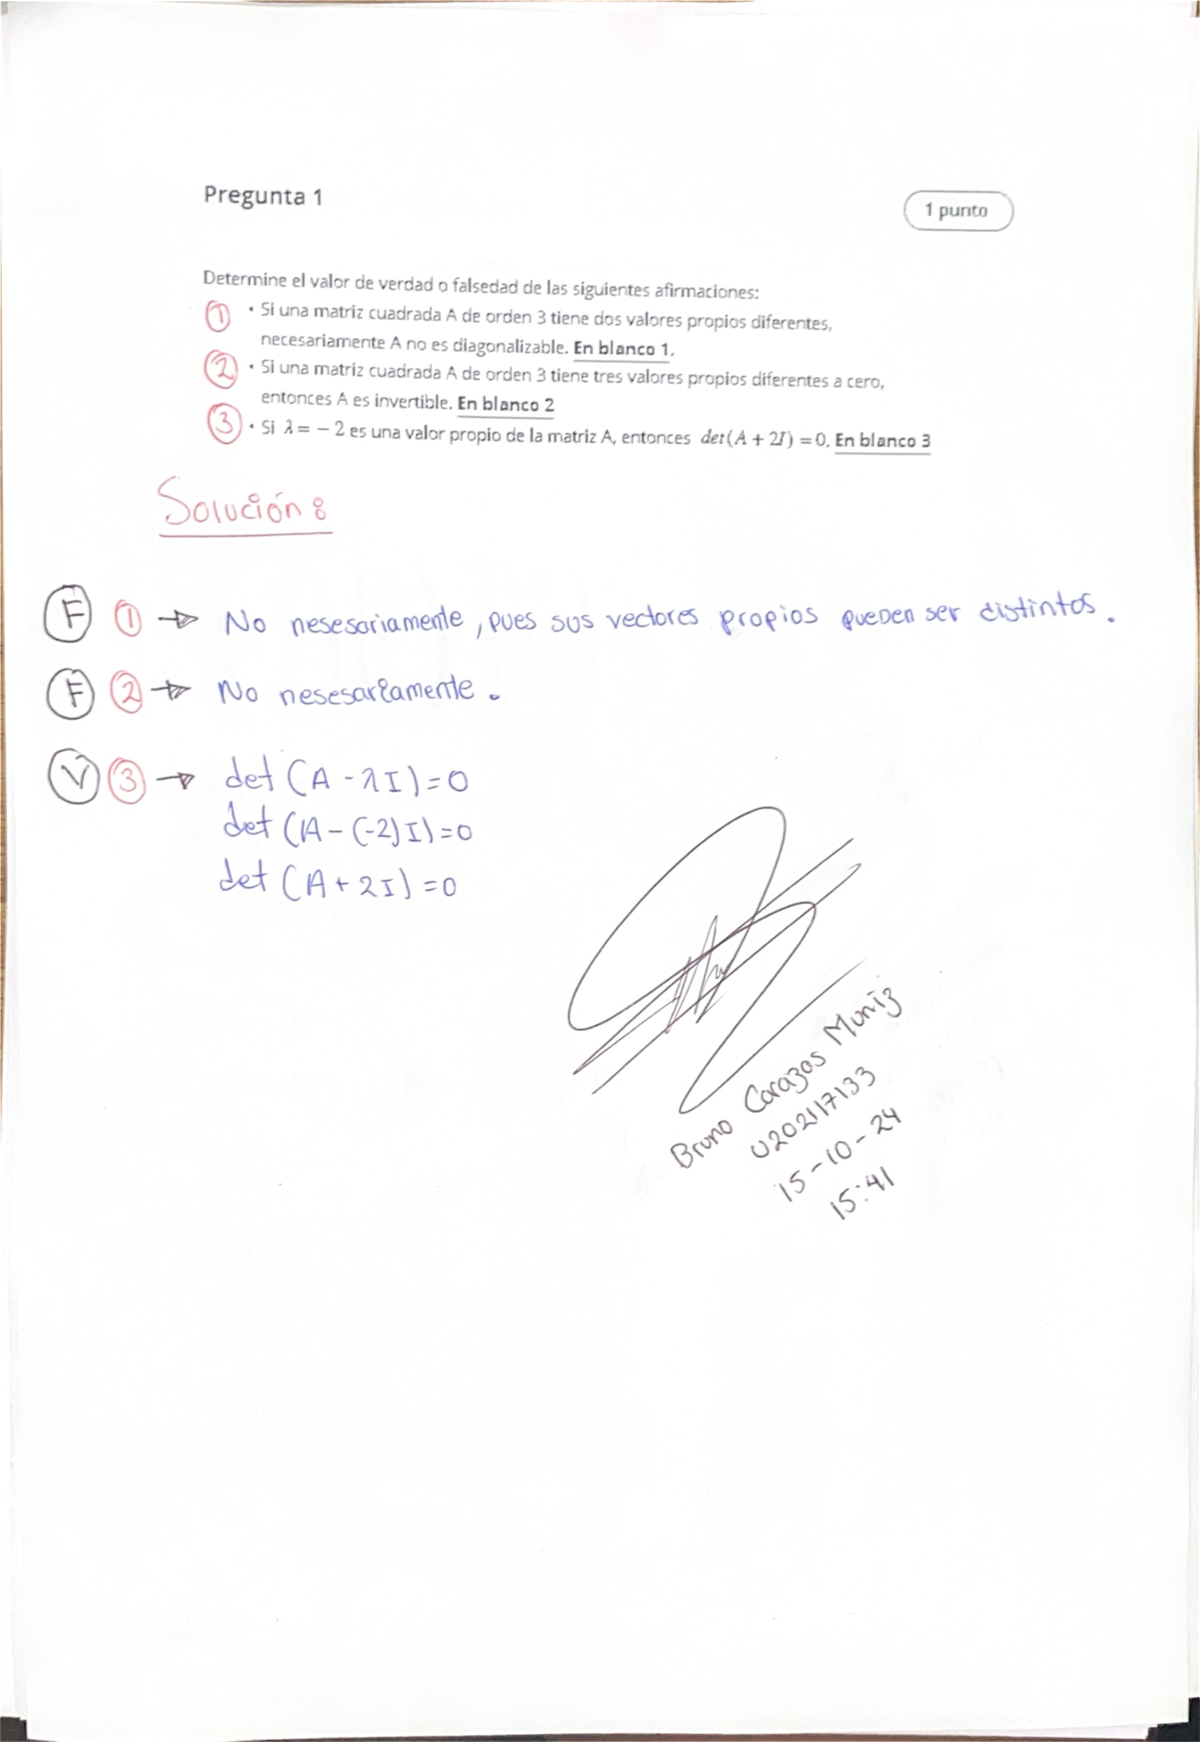 Pregunta 1
1 punto
Determine el valor de verdad o falsedad de las siguientes afirmaciones:
① • Si una matriz cuadrada A de orden 3 tiene dos valores propios diferentes,
necesariamente A no es diagonalizable. En blanco 1.
② • Si una matriz cuadrada A de orden 3 tiene tres valores propios diferentes a cero,
entonces A es invertible. En blanco 2
③ • Si λ = − 2 es una valor propio de la matriz A, entonces det(A + 2I) = 0. En blanco 3
Solución:
F ① → No nesesariamente, pues sus vectores propios pueden ser distintos.
F ② → No nesesariamente.
V ③ → det (A - λI) = 0
det (A - (-2)I) = 0
det (A + 2I) = 0
Bruno Carazas Muniz
U202117133
15-10-24
15:41